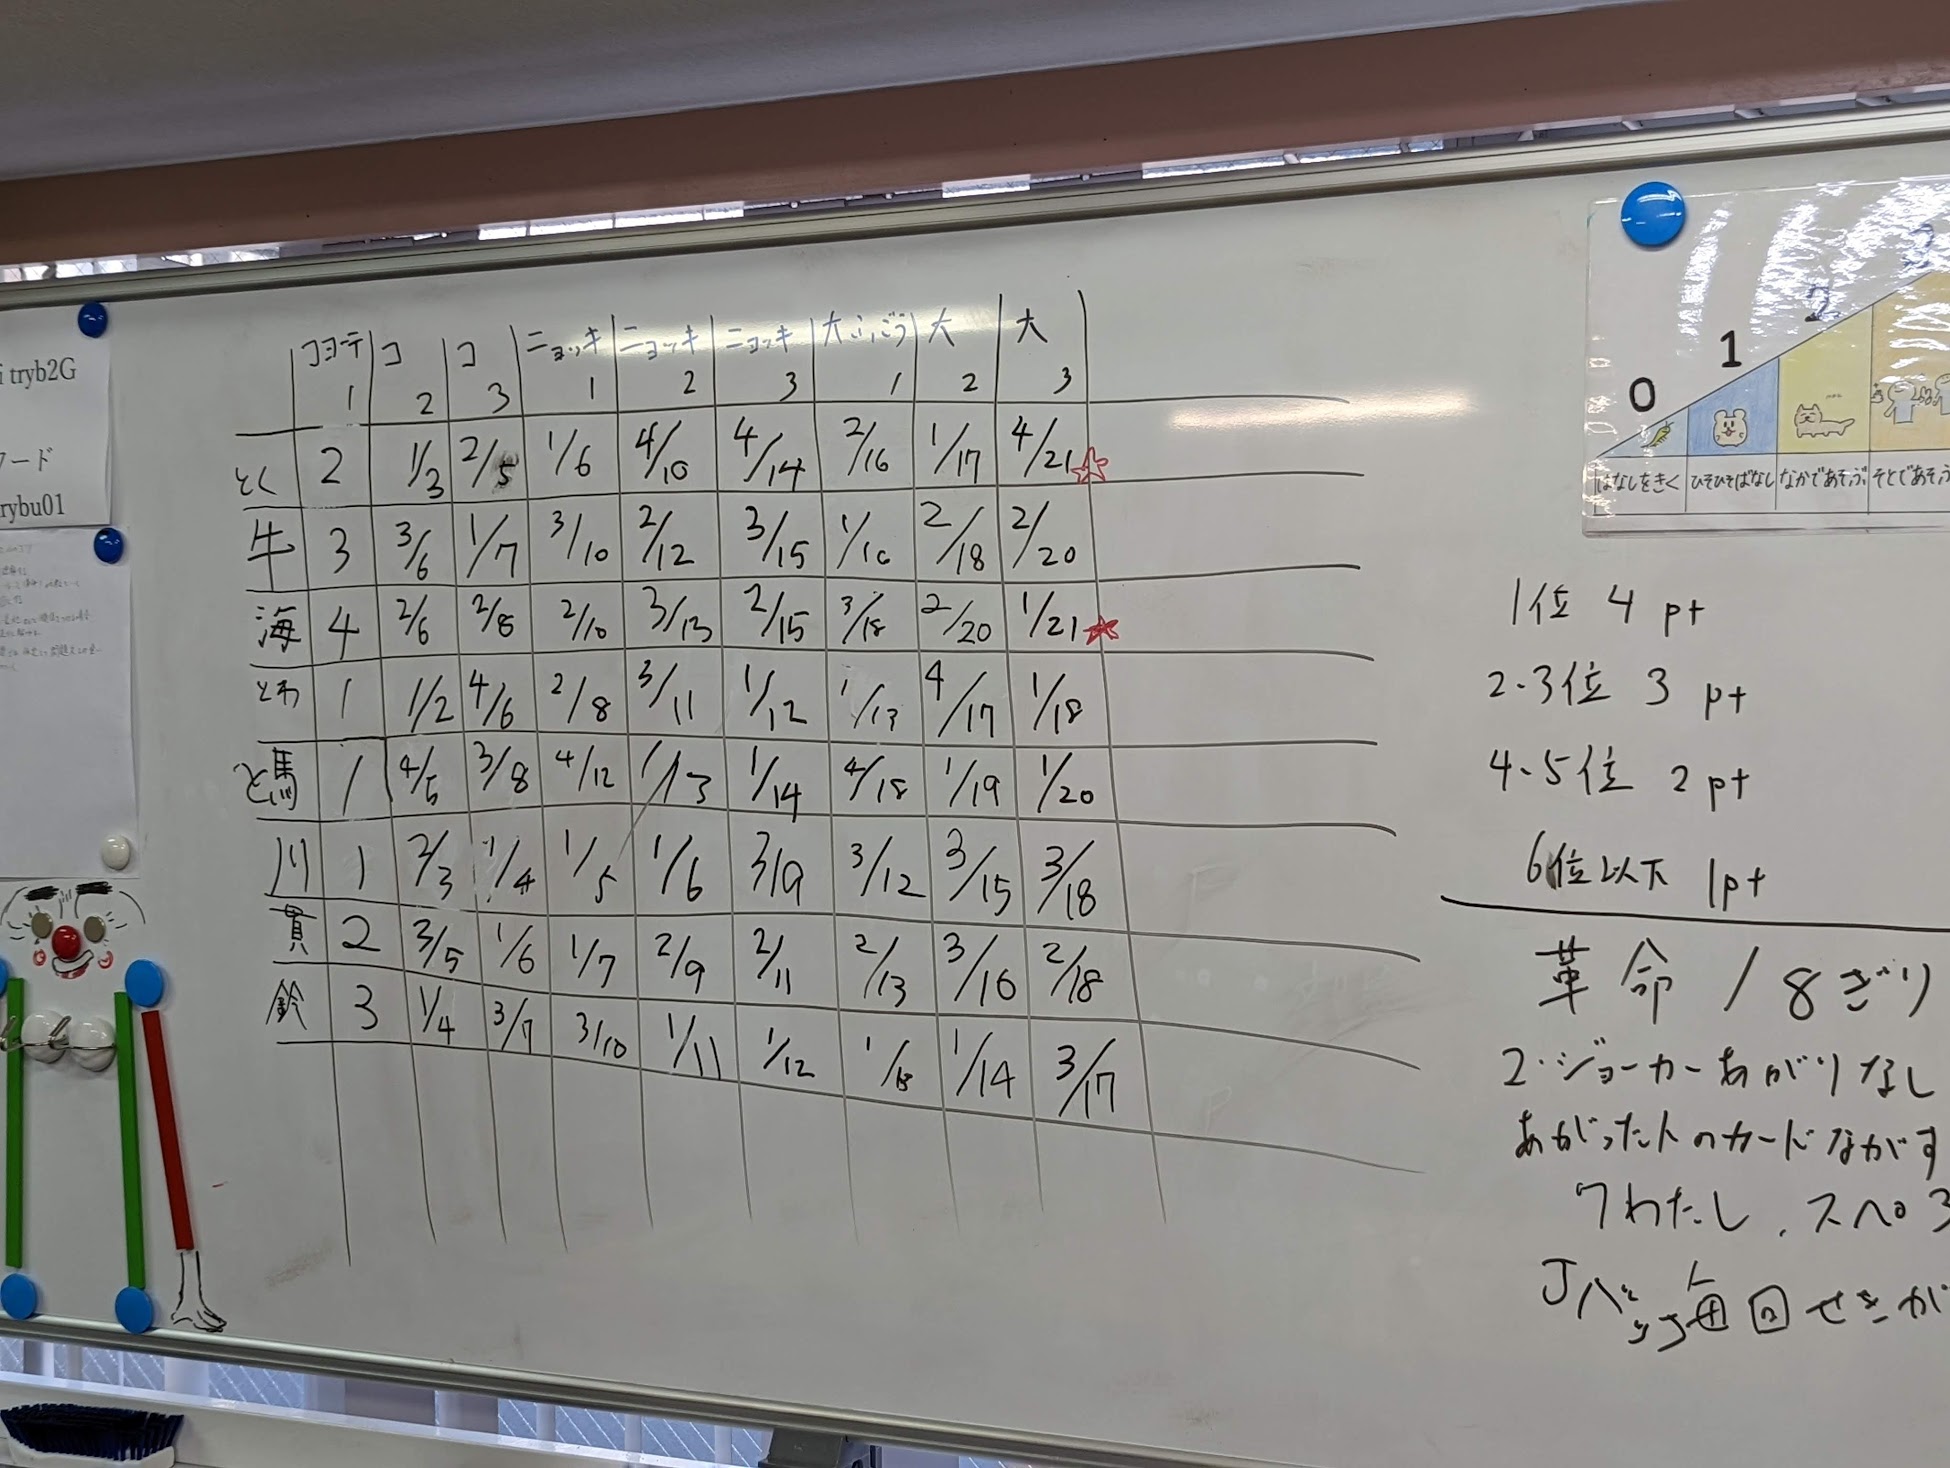 i tryb2G
ワード
rybu01
コヨーテ コ コ ニョッキ ニョッキ ニョッキ 大ふごう 大 大
1 2 3 1 2 3 1 2 3
とく 2 1/3 2/5 1/6 4/10 4/14 2/16 1/17 4/21 ☆
牛 3 3/6 1/7 3/10 2/12 3/15 1/16 2/18 2/20
海 4 2/6 2/8 2/10 3/13 2/15 3/18 2/20 1/21 ★
とわ 1 1/2 4/6 2/8 3/11 1/12 1/13 4/17 1/18
と馬 1 4/5 3/8 4/12 1/13 1/14 4/18 1/19 1/20
川 1 2/3 1/4 1/5 1/6 3/9 3/12 3/15 3/18
貫 2 3/5 1/6 1/7 2/9 2/11 2/13 3/16 2/18
鈴 3 1/4 3/7 3/10 1/11 1/12 1/13 1/14 3/17
0 1 2 3
はなしをきく ひそひそばなし なかであそぶ そとであそぶ
1位 4pt
2・3位 3pt
4・5位 2pt
6位以下 1pt
革命 / 8ぎり
2・ジョーカーあがりなし
あがった人のカードながす
7わたし、スペ3
Jバック 毎回せきが